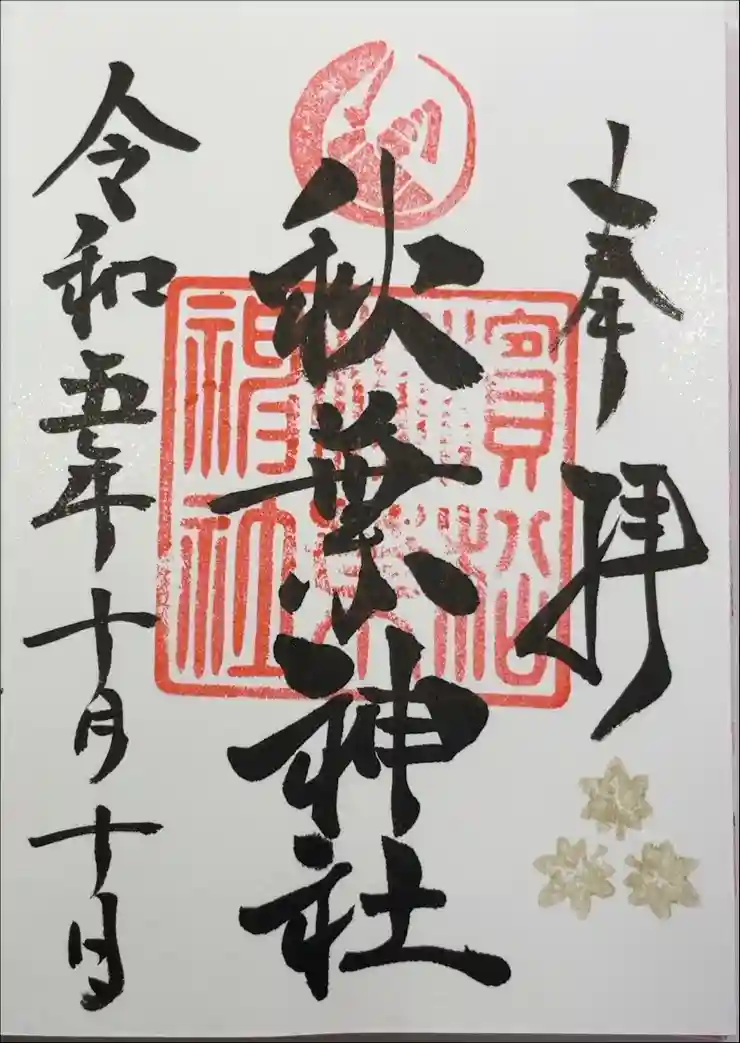 奉拝
秋葉神社
濱松
秋葉
神社
令和五年十月十日